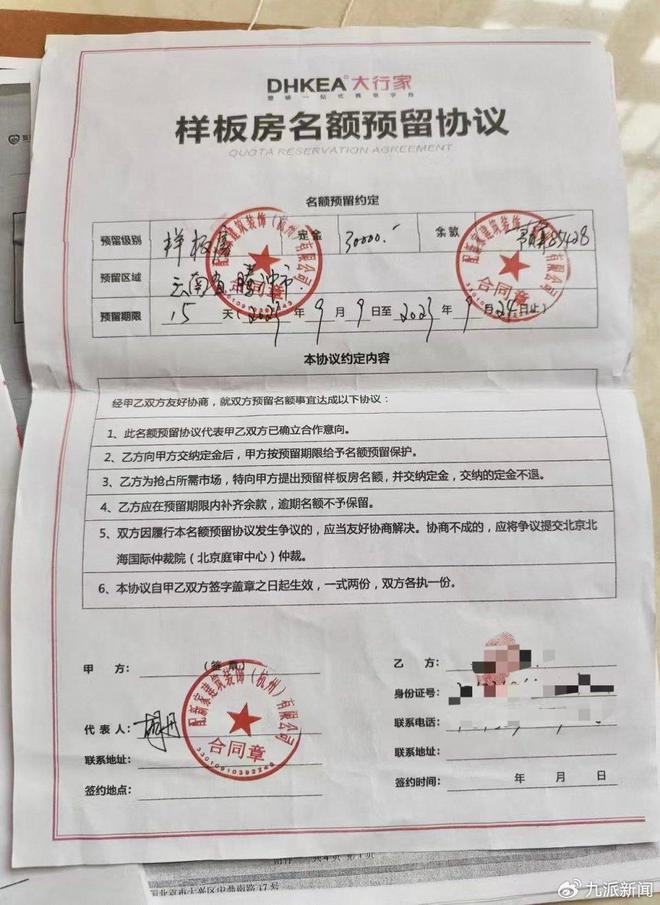 DHKEA®大行家
样板房名额预留协议
QUOTA RESERVATION AGREEMENT
名额预留约定
预留级别 样板房 定金 30000.- 余款 85428
预留区域 云南省腾冲市
预留期限 15 天(2023 年 9 月 9 日至 2023 年 9 月 24 日止)
配新家建筑装饰(杭州)有限公司
合同章
配新家建筑装饰(杭州)有限公司
合同章
本协议约定内容
经甲乙双方友好协商,就双方预留名额事宜达成以下协议:
1、此名额预留协议代表甲乙双方已确立合作意向。
2、乙方向甲方交纳定金后,甲方按预留期限给予名额预留保护。
3、乙方为抢占所需市场,特向甲方提出预留样板房名额,并交纳定金,交纳的定金不退。
4、乙方应在预留期限内补齐余款,逾期名额不予保留。
5、双方因履行本名额预留协议发生争议的,应当友好协商解决。协商不成的,应将争议提交北京北
海国际仲裁院(北京庭审中心)仲裁。
6、本协议自甲乙双方签字盖章之日起生效,一式两份,双方各执一份。
甲 方: (签章)
代表人:
联系地址:
签约地点:
配新家建筑装饰(杭州)有限公司
合同章
33010910392248
乙 方:
身份证号:
联系电话:
联系地址:
签约时间: 年 月 日
九派新闻